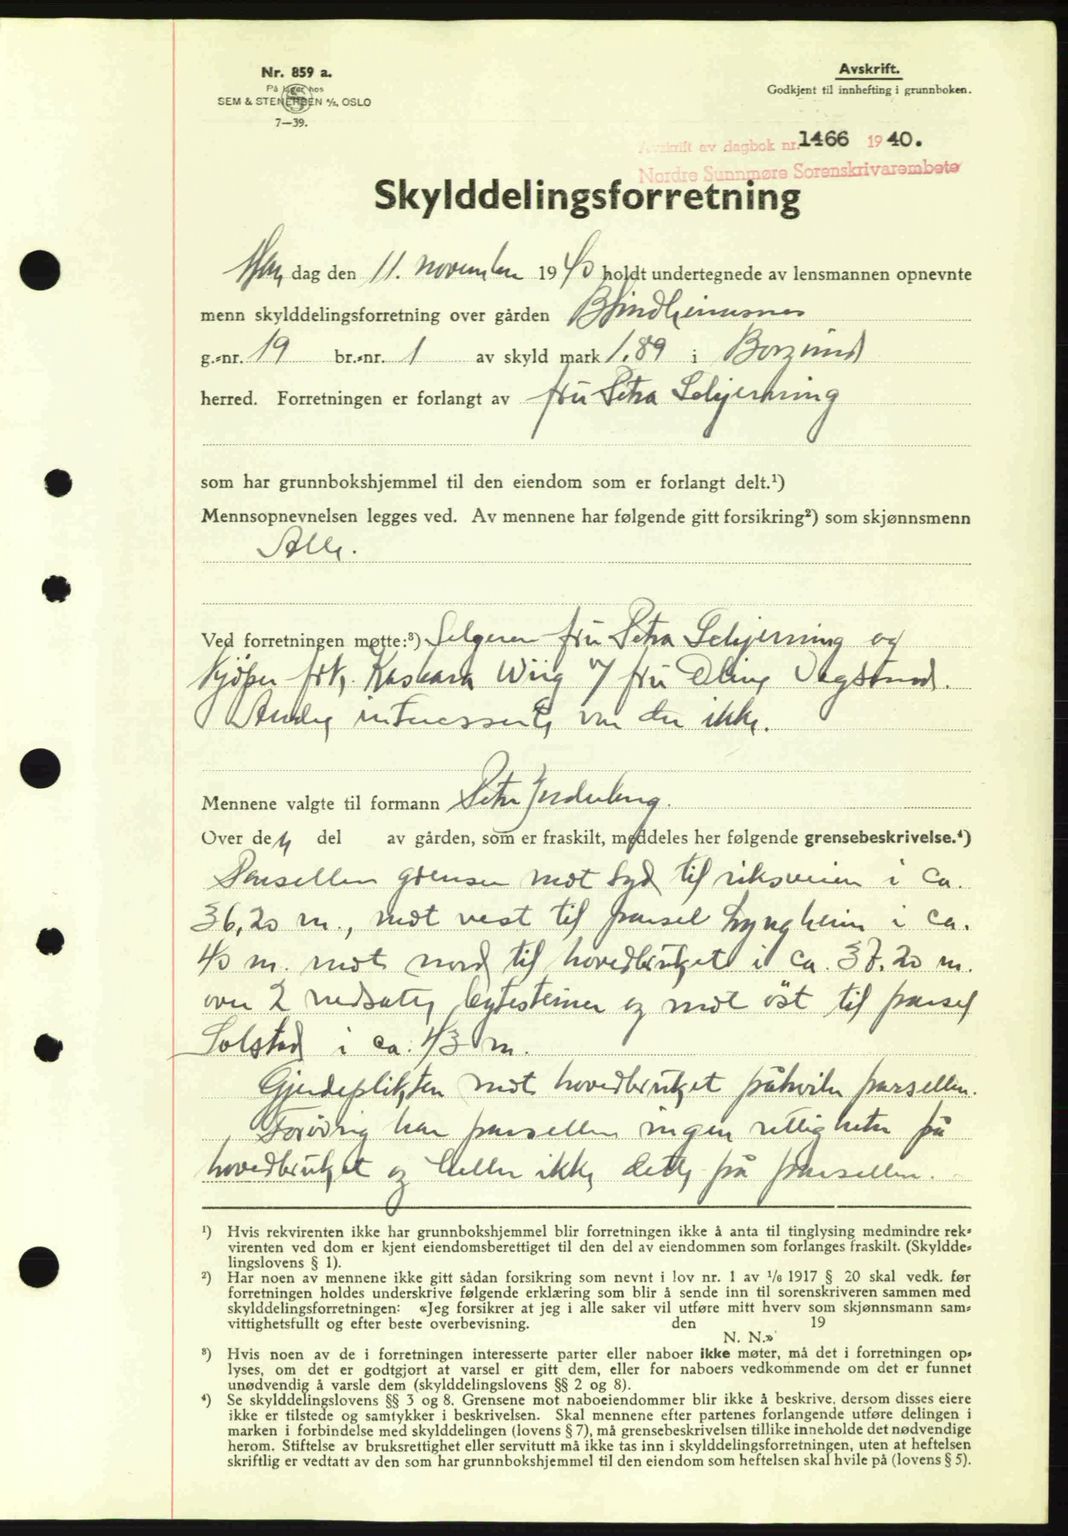 Nr. 859 a.
På lager hos
SEM & STENERSEN A/S, OSLO
7—39.
Avskrift.
Godkjent til innhefting i grunnboken.
Avskrift av dagbok nr. 1466 1940.
Nordre Sunnmøre Sorenskrivarembete
Skylddelingsforretning
dag den 11. november 1940 holdt undertegnede av lensmannen opnevnte
menn skylddelingsforretning over gården Blindheimsnes
g.-nr. 19 br.-nr. 1 av skyld mark 1.89 i Borgund
herred. Forretningen er forlangt av fru Petra Schjerning
som har grunnbokshjemmel til den eiendom som er forlangt delt.¹)
Mennsopnevnelsen legges ved. Av mennene har følgende gitt forsikring²) som skjønnsmenn
Alle.
Ved forretningen møtte:³) Selgeren fru Petra Schjerning og
kjøper frk. Kaskara Wiig v/ fru Oline Vegsund.
Andre interesserte var der ikke.
Mennene valgte til formann Peter
Over den del av gården, som er fraskilt, meddeles her følgende grensebeskrivelse.⁴)
Parsellen grenser mot syd til riksveien i ca.
36,20 m., mot vest til parsel Lyngheim i ca.
40 m. mot nord til hovedbruket i ca. 37.20 m.
over 2 nedsatte bytesteiner og mot öst til parsel
Solstad i ca. 43 m.
Gjerdeplikten mot hovedbruket påhviler parsellen.
Forövrig har parsellen ingen rettigheter på
hovedbruket og heller ikke dette på parsellen.
¹) Hvis rekvirenten ikke har grunnbokshjemmel blir forretningen ikke å anta til tinglysing medmindre rek-
virenten ved dom er kjent eiendomsberettiget til den del av eiendommen som forlanges fraskilt. (Skyldde-
lingslovens § 1).
²) Har noen av mennene ikke gitt sådan forsikring som nevnt i lov nr. 1 av ¹/₆ 1917 § 20 skal vedk. før
forretningen holdes underskrive følgende erklæring som blir å sende inn til sorenskriveren sammen med
skylddelingsforretningen: «Jeg forsikrer at jeg i alle saker vil utføre mitt hverv som skjønnsmann sam-
vittighetsfullt og efter beste overbevisning. den 19
N. N.»
³) Hvis noen av de i forretningen interesserte parter eller naboer ikke møter, må det i forretningen op-
lyses, om det er godtgjort at varsel er gitt dem, eller for naboers vedkommende om det er funnet
unødvendig å varsle dem (skylddelingslovens §§ 2 og 8).
⁴) Se skylddelingslovens §§ 3 og 8. Grensene mot naboeiendommer blir ikke å beskrive, dersom disses eiere
ikke er tilstede og samtykker i beskrivelsen. Skal mennene efter partenes forlangende utføre delingen i
marken i forbindelse med skylddelingen (lovens § 7), må grensebeskrivelsen tillike inneholde det nødvendige
herom. Stiftelse av bruksrettighet eller servitutt må ikke tas inn i skylddelingsforretningen, uten at heftelsen
skriftlig er vedtatt av den som har grunnbokshjemmel til den eiendom som heftelsen skal hvile på (lovens § 5).